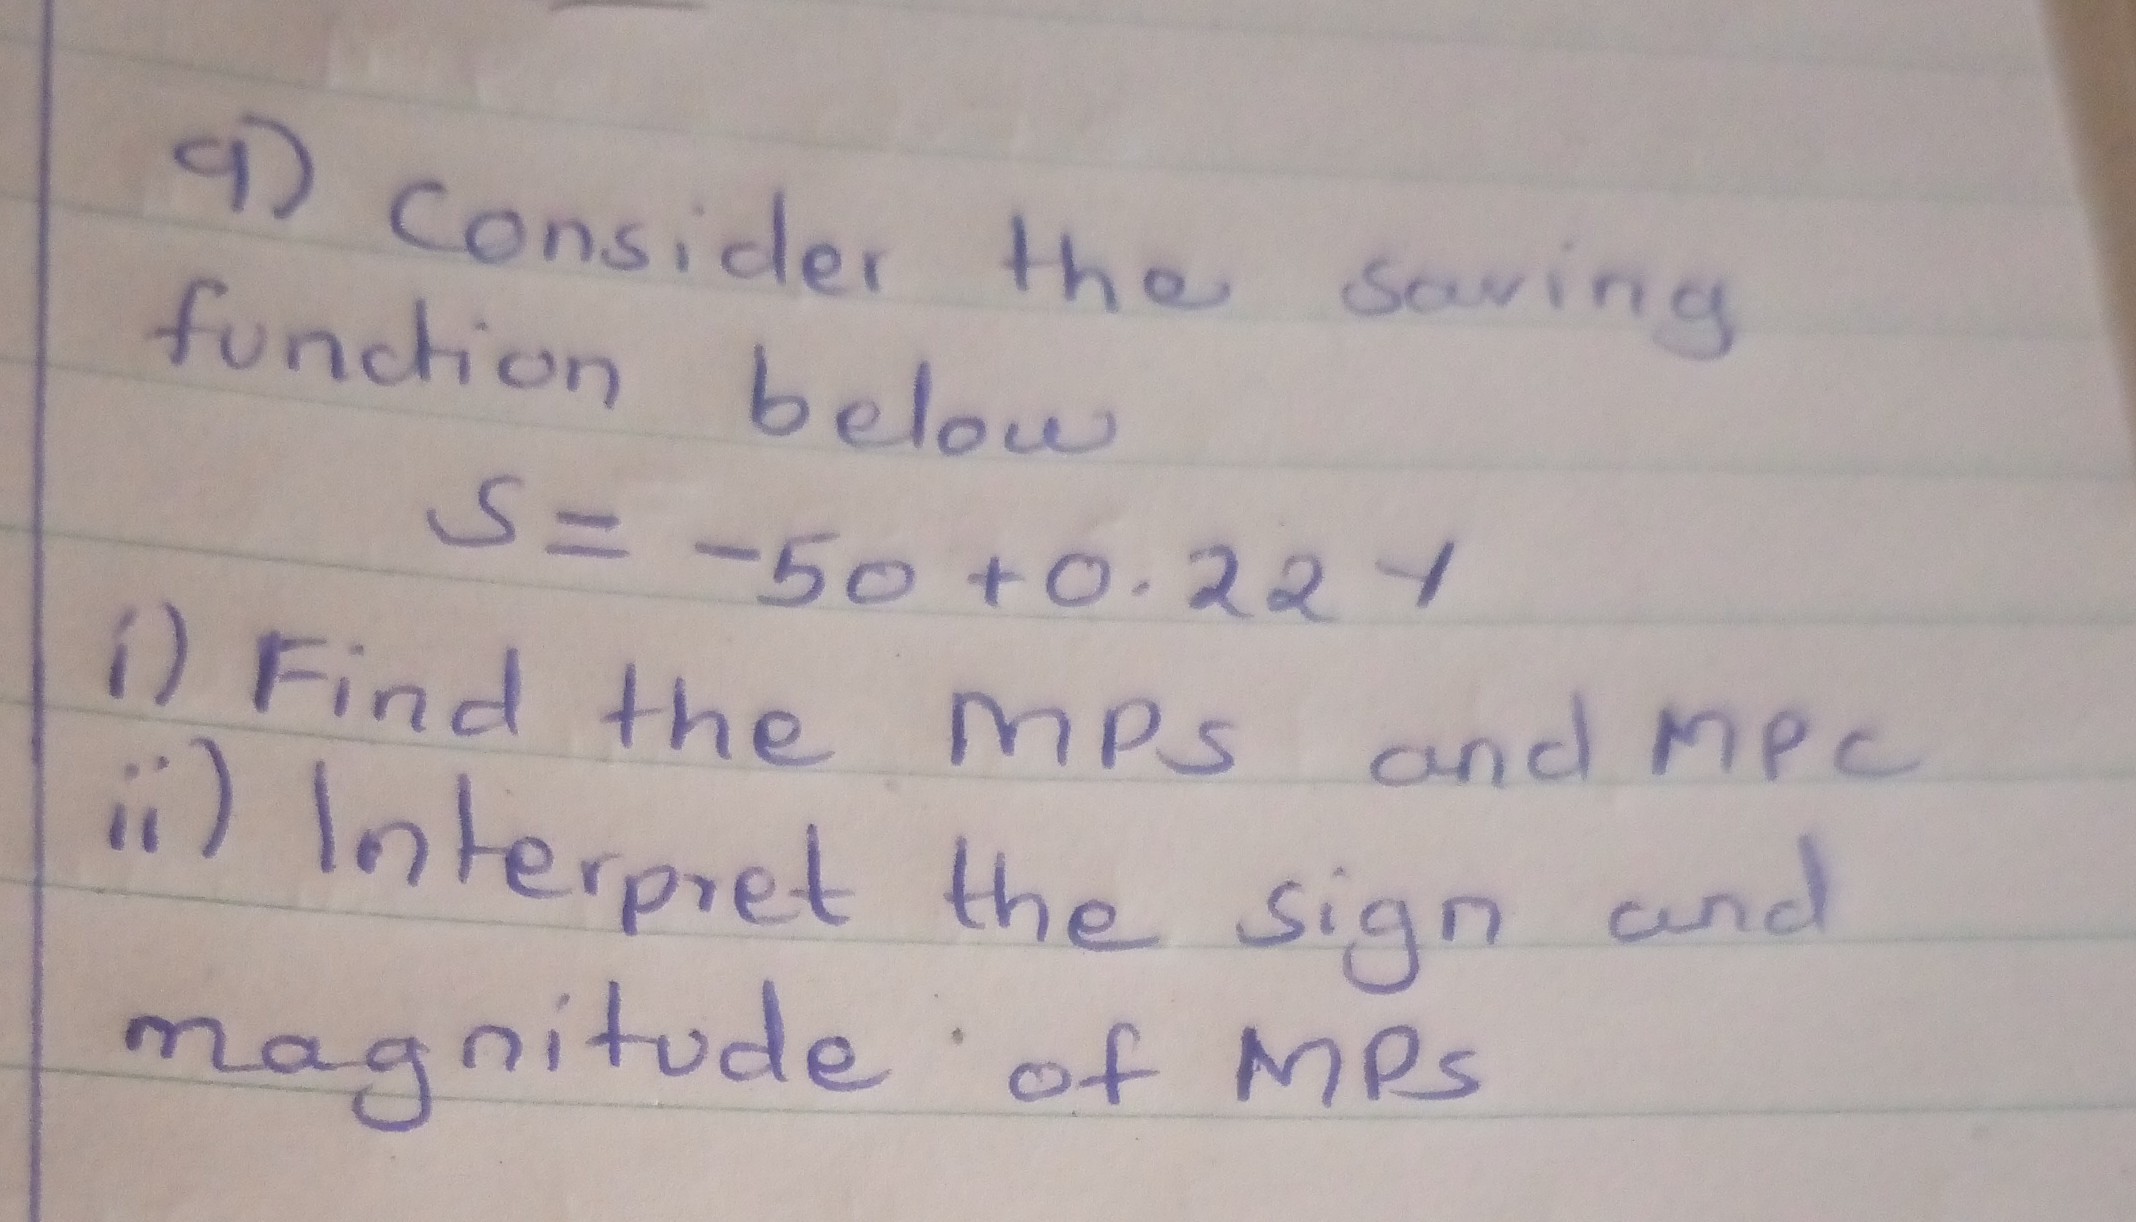 9) Consider the saving
function below
S = -50 + 0.22Y
i) Find the MPS and MPC
ii) Interpret the sign and
magnitude of MPS